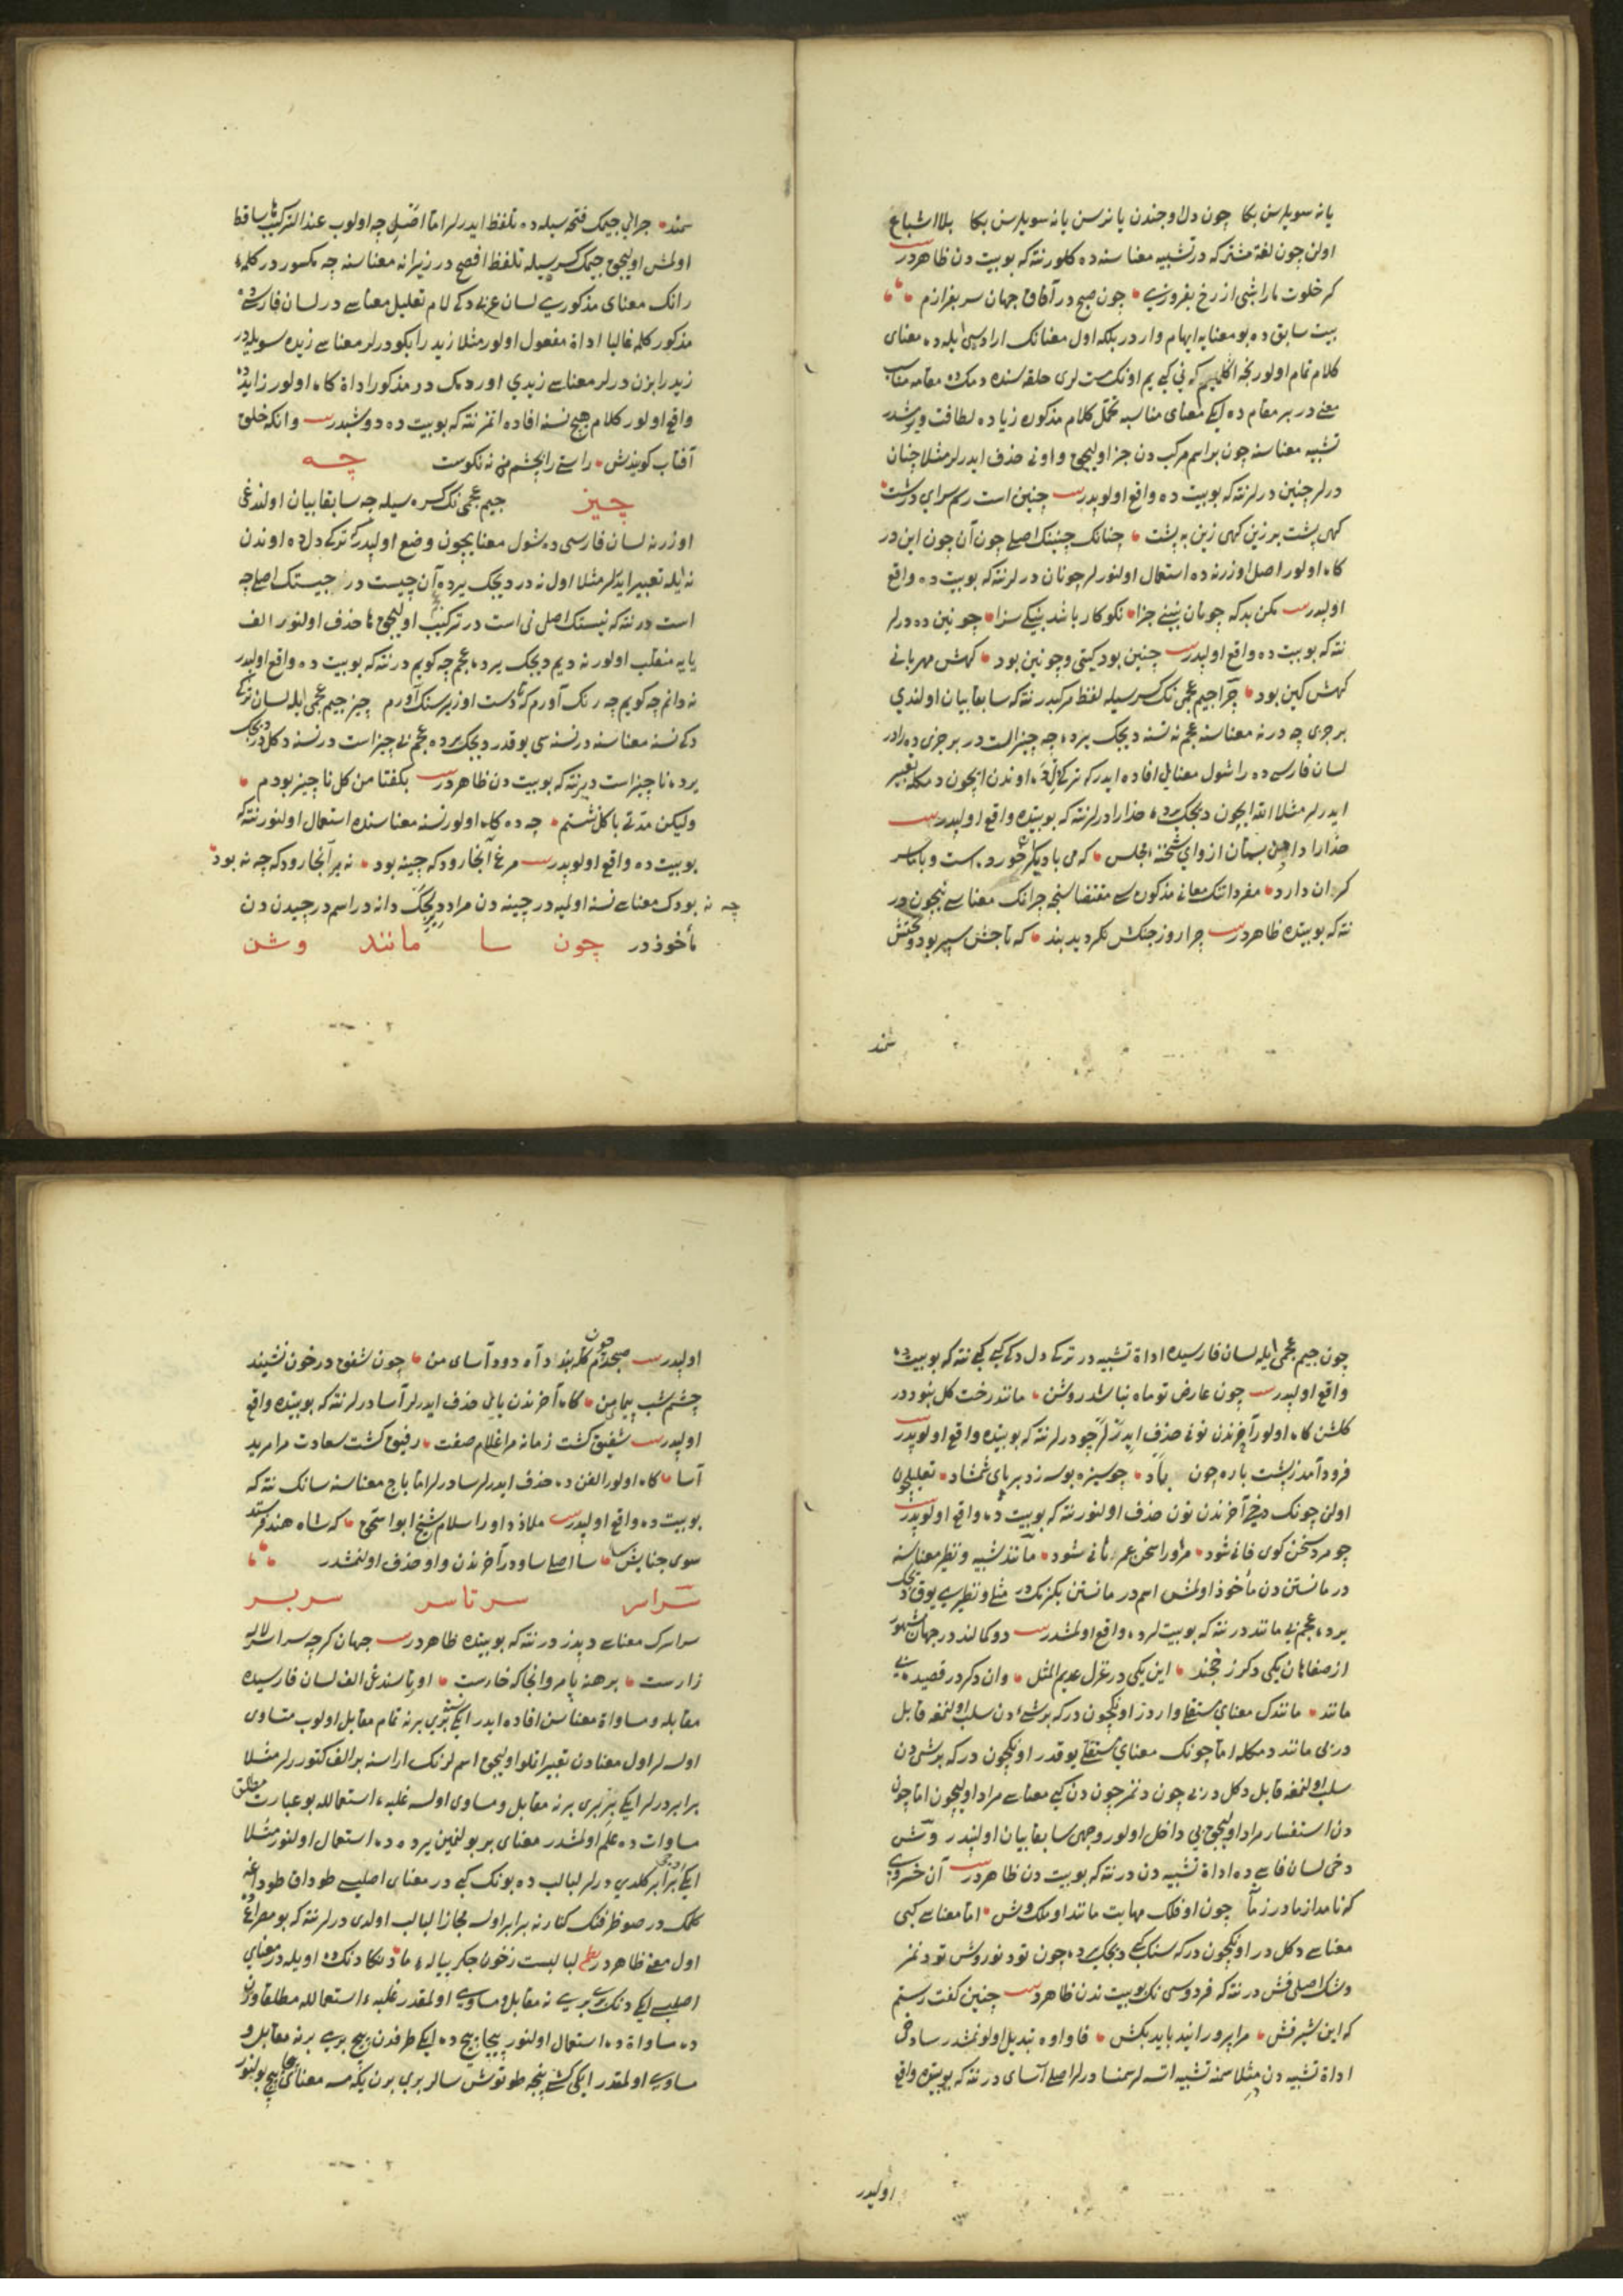 یانه سویلرسن بکا چون دل اوجندن یانرسن یانه سویلرسن بکا بلا اشباع
اولن چون لغة مشترکه در تشبیه معناسنده کلور نته که بو بیت دن ظاهردر
کر خلوت مارا شبی از رخ بفروزی چون صبح در آفاق جهان سر بفرازم
بیت سابق ده بو معنایه ایهام وار در بلکه اول معنانک ارادسی ایله ده معنای
کلام تمام اولور
معنی در بر مقام ده ایکی معنای مناسبه تحمل کلام مذکوره زیاده لطافت ویرشدر
تشبیه معناسنه چون بر اسم مرکب دن جز اولیجق واونی حذف ایدرلر مثلا چنان
درلر چنین درلر نته که بو بیت ده واقع اولوبدر چنین است رسم سرای درشت
کهی پشت بر زین کهی زین به پشت چنانک چنینک اصلی چون آن چون این در
کاه اولور اصل اوزرنه ده استعمال اولنور لر چونان درلر نته که بو بیت ده واقع
اولبدر مکن بد که چونان بینی جزا نکوکار باشد بنیکی سزا چونین ده درلر
نته که بو بیت ده واقع اولبدر چنین بود کیتی و چونین بود کهش مهربانی
کهش کین بود چرا جیم عجمی نک کسر سیله لفظ مرکبدر نته که سابقا بیان اولندی
بر جزی چه در نه معناسنه عجم نه نسنه دیجک یرده چه چیز است در بر جزی ده را در
لسان فارسی ده را شول معنایی افاده ایدر که ترکی دلده اوندن ایچون دمکله تعبیر
ایدرلر مثلا الله ایچون دیجک یرده خدارا درلر نته که بو بیتده واقع اولبدر
خدارا داد من بستان از و ای شحنه مجلس که می با دیکری خورده است و با ما سر
کران دارد مفرداتنک معانی مذکوره سی مقتضاسنجه چرانک معناسی نیچون در
نته که بو بیتده ظاهردر چرا روز جنکش نکردید بند که تاجش سپر بود و تختش
سمند
سمند چرایی جیمک فتحه سیله ده تلفظ ایدرلر اما اصلی چه اولوب عند الترکیب ها ساقط
اولمش اولیجق جیمک کسر سیله تلفظ افصح در زیرا نه معناسنه چه مکسور در کلمهٔ
رانک معنای مذکوری لسان عربی ده کی لام تعلیل معناسی در لسان فارسی ده
مذکور کلمه غالبا اداة مفعول اولور مثلا زید را بکو درلر معناسی زیده سویله در
زید را بزن درلر معناسی زیدی اور دمک در مذکور اداة کاه اولور زاید ده
واقع اولور کلام هیچ نسنه افاده اتمز نته که بو بیت ده دوشبدر وانکه خلق
آفتاب کویندش راستی را بچشم من نه نکوست چه
چیز جیم عجمی نک کسره سیله چه سابقا بیان اولندغی
اوزرنه لسان فارسی ده شول معنایچون وضع اولبدر که ترکی دل ده اوندن
نه ایله تعبیر ایدرلر مثلا اول نه در دیجک یرده آن چیست در چیستک اصلی چه
است در نته که نیستک اصلی نی است در ترکیب اولیجق ها حذف اولنور الف
یایه منقلب اولور نه دیم دیجک یرده عجم چه کویم در نته که بو بیت ده واقع اولبدر
ندانم چه کویم چه رنک آورم که تا دست او زیر سنک آورم چیز جیم عجمی ایله لسان ترکی
ده کی نسنه معناسنه در نسنه سی یوقدر دیجک یرده عجم بی چیز است در نسنه دکل در دیجک
یرده ناچیز است دیر نته که بو بیت دن ظاهردر بکفتا من کل ناچیز بودم
ولیکن مدتی با کل نشستم چه ده کاه اولور نسنه معناسنده استعمال اولنور نته که
بو بیت ده واقع اولوبدر مرغ آنجا رود که چینه بود نه بر آنجا رود که چه نه بود
چه نه بودک معناسی نسنه اولمیه در چینه دن مراد دیجک دانه در اسمدر چیدن دن
مأخوذدر چون سا مانند وشن
چون جیم عجمی ایله لسان فارسیده اداة تشبیه در ترکی دل ده کی کبی کبی نته که بو بیت ده
واقع اولبدر چون عارض تو ماه نباشد روشن مانند رخت کل نبود در
کلشن کاه اولور آخرندن نونی حذف ایدرلر چو درلر نته که بو بیتده واقع اولوبدر
فرود آمد ز پشت باره چون باد چو سبزه بوسه زد بر پای شمشاد تعلیلچون
اولن چونک دخی آخرندن نون حذف اولنور نته که بو بیت ده واقع اولوبدر
چو مرد سخن کوی فانی شود مر اورا سخن عمر ثانی شود مانند تشبیه و نظیر معناسنه
در مانستن دن مأخوذ اولمش اسمدر مانستن بکزمک در مثلی و نظیری یوق دیجک
یرده عجم بی مانند در نته که بو بیت لرده واقع اولمشدر دو کمالند در جهان مشهور
از صفاهان یکی دکر ز خجند این یکی در غزل عدیم المثل وان دکر در قصیده بی
مانند مانندک معنای مستقلی وار در اونکچون در که بر شیء دن سلب اولنمغه قابل
در بی مانند دمکله اما چونک معنای مستقلی یوقدر اونکچون در که بر شی دن
سلب اولنمغه قابل دکل در بی چون دنمز چون دن کبی معناسی مراد اولیجق اما چون
دن استفسار مراد اولیجق بی داخل اولور وجهی سابقا بیان اولنبدر وشن
دخی لسان فارسی ده اداة تشبیه دن در نته که بو بیت دن ظاهردر آن خسروی
که نامد از مادر زما چون او فلک مهابت مانند او ملک وش اما معناسی کبی
معناسی دکل در اونکچون در که سنک کبی دیجک یرده چون تو دنور وش تو دنمز
وشک اصلی فش در نته که فردوسی نک بو بیتندن ظاهردر چنین کفت رستم
که این شیرفش مرا پرورانید باید بکش فا واوه تبدیل اولونمشدر سا دخی
اداة تشبیه دن در مثلا سمنه تشبیه اتسه لر سمنسا درلر اصلی آسای در نته که بو بیتده واقع
اولبدر
اولبدر صبحدم چون کله بندد آه دود آسای من چون شفق در خون نشیند
چشم شب پیمای من کاه آخرندن یایی حذف ایدرلر آسا درلر نته که بو بیتده واقع
اولبدر شفیق کشت زمانه مرا غلام صفت رفیق کشت سعادت مرا مرید
آسا کاه اولور الفن ده حذف ایدرلر سا درلر اما باج معناسنه سانک نته که
بو بیت ده واقع اولبدر ملاذ داور اسلام شیخ ابو اسحق که شاه هند فرستد
سوی جنابش سا سا اصلی ساو در آخرندن واو حذف اولنمشدر
سراسر سرتاسر سربسر
سراسرک معناسی دیدز در نته که بو بیتده ظاهردر جهان کرچه سراسر لاله
زارست برهنه پا مرو انجا که خارست اورتاسندغی الف لسان فارسیده
مقابله و مساواة معناسن افاده ایدر ایکی نسنه بری برنه تمام مقابل اولوب متساوی
اولسه لر اول معنادن تعبیر اتلو اولیجق اسم لرنک اراسنه بر الف کتورر لر مثلا
برابر درلر ایکی نسنه بری برنه مقابل و مساوی اولسه غلبهٔ استعمالله بو عبارت مطلق
مساوات ده علم اولمشدر معنای بر بولنمین یرده ده استعمال اولنور مثلا
ایکی برابر کلدی درلر لبالب ده بونک کبی در معنای اصلیسی طوداق طوداغه
کلمک در صو ظرفنک کنارنه برابر اولسه مجازا لبالب اولدی درلر نته که بو مصراع ده
اول معنی ظاهردر ع لبالبست ز خون جکر پیالهٔ ما دنکادنک ده اویله در معنای
اصلیسی ایکی دنک بری بری نه مقابل و مساوی اولمقدر غلبهٔ استعمالله مطلقا وزن
ده مساواة ده استعمال اولنور پیچاپیچ ده ایکی طرفدن پیچ بری برنه مقابل و
مساوی اولمقدر ایکی کشی پنجه طوتوشسالر بری برن یکمسه معنای پیچاپیچ بولنور